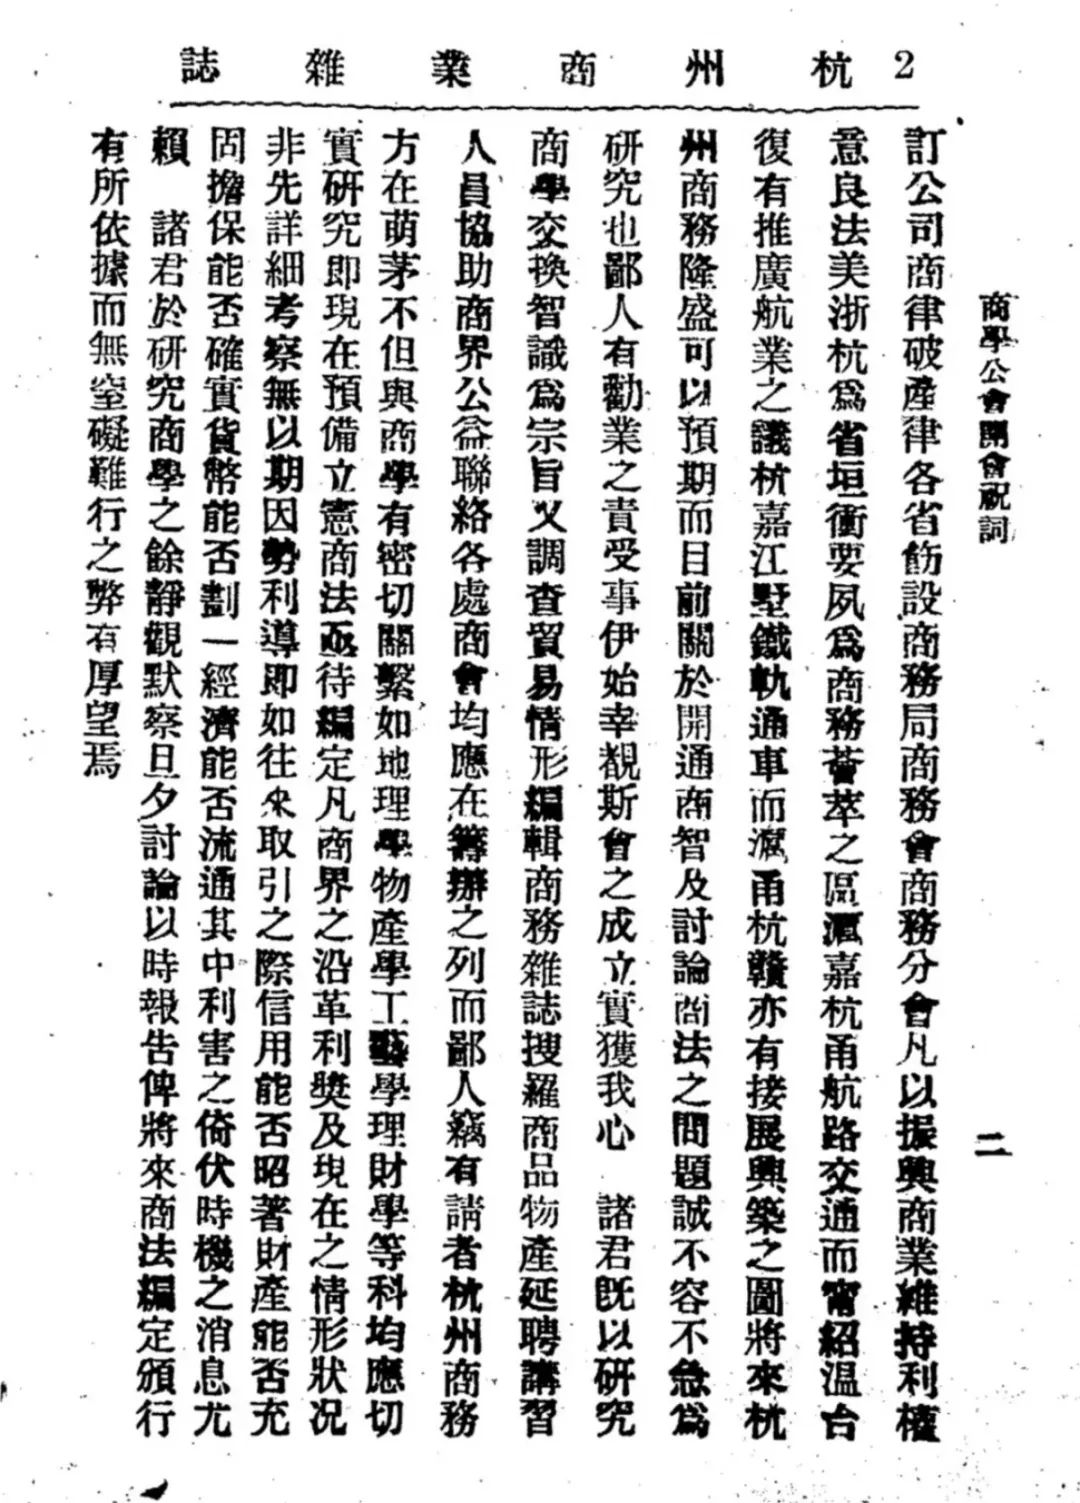 2 杭州商業雜誌
商學公會開會祝詞 二
訂公司商律破產律各省飭設商務局商務會商務分會凡以振興商業維持利權
意良法美浙杭爲省垣衝要夙爲商務薈萃之區滬嘉杭甬航路交通而甯紹溫台
復有推廣航業之議杭嘉江墅鐵軌通車而滬甬杭贛亦有接展興築之圖將來杭
州商務隆盛可以預期而目前關於開通商智及討論商法之問題誠不容不急爲
研究也鄙人有勸業之責受事伊始幸覩斯會之成立實獲我心 諸君既以研究
商學交換智識爲宗旨又調查貿易情形編輯商務雜誌搜羅商品物產延聘講習
人員協助商界公益聯絡各處商會均應在籌辦之列而鄙人竊有請者杭州商務
方在萌茅不但與商學有密切關繫如地理學物產學工藝學理財學等科均應切
實研究即現在預備立憲商法亟待編定凡商界之沿革利獘及現在之情形狀况
非先詳細考察無以期因勢利導即如往來取引之際信用能否昭著財產能否充
固擔保能否確實貨幣能否劃一經濟能否流通其中利害之倚伏時機之消息尤
賴 諸君於研究商學之餘靜觀默察旦夕討論以時報告俾將來商法編定頒行
有所依據而無窒礙難行之弊有厚望焉